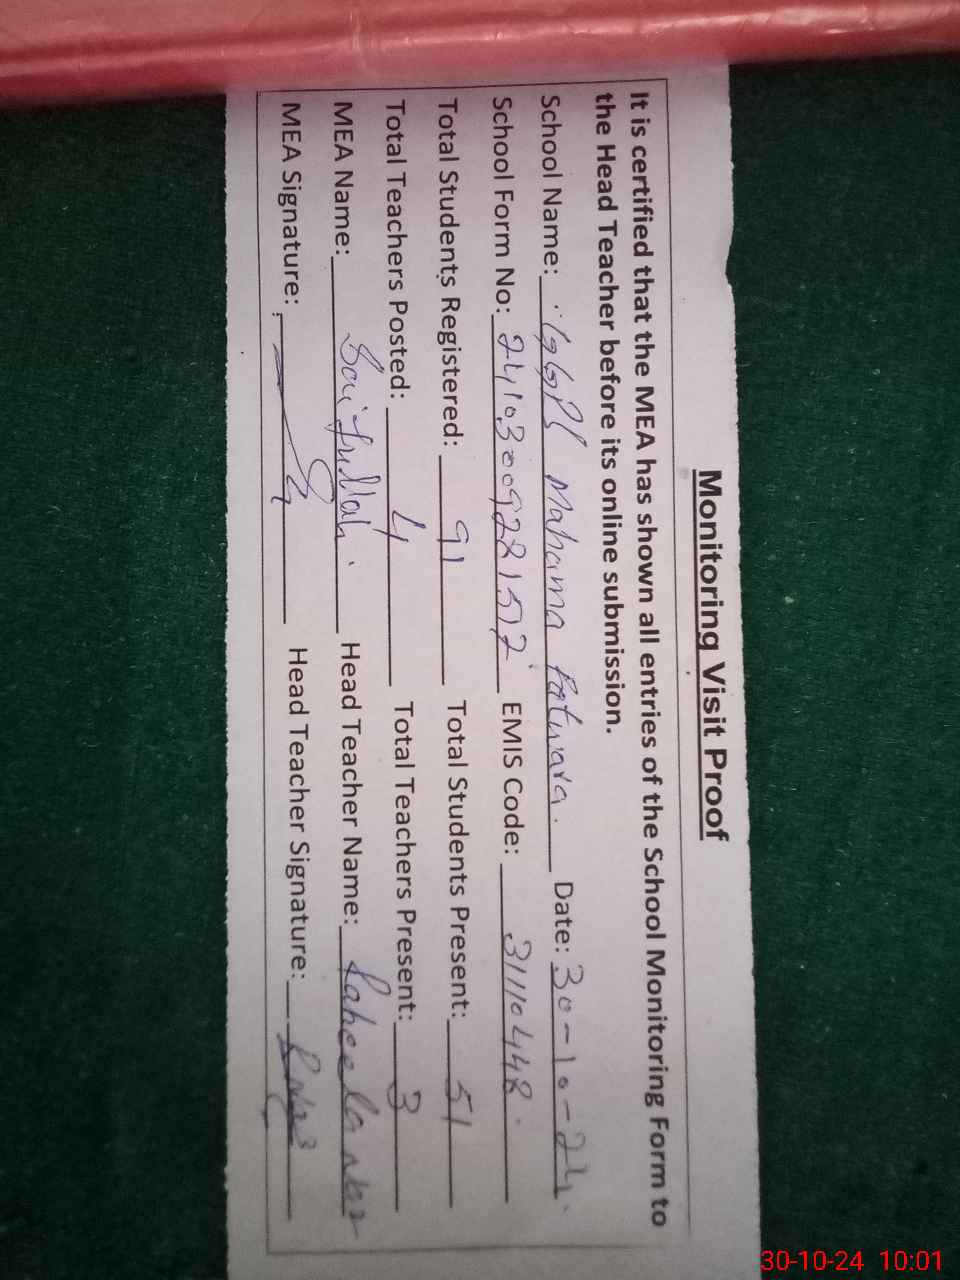 Monitoring Visit Proof
It is certified that the MEA has shown all entries of the School Monitoring Form to
the Head Teacher before its online submission.
School Name: GGPS Mahama Patwara. Date: 30-10-24.
School Form No: 24103009221572 EMIS Code: 31110448.
Total Students Registered: 91 Total Students Present: 51
Total Teachers Posted: 4 Total Teachers Present: 3
MEA Name: Saifullah. Head Teacher Name: Raheela
MEA Signature: Head Teacher Signature:
30-10-24 10:01